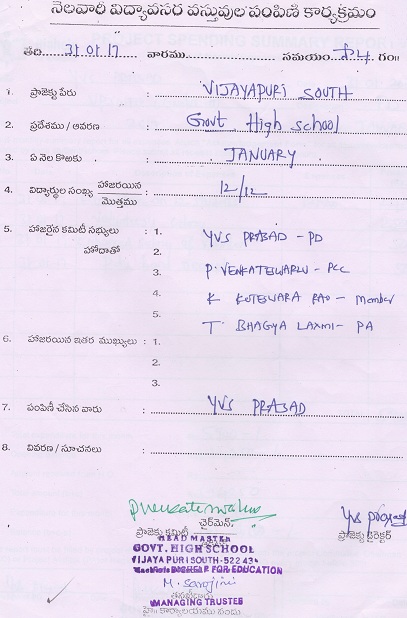 నెలవారీ విద్యావసర వస్తువుల పంపిణీ కార్యక్రమం
తేది.. 31.01.17 వారము.... సమయం.. గం॥
1. ప్రాజెక్టు పేరు : VIJAYAPURI SOUTH
2. ప్రదేశము / ఆవరణ : Govt. High school
3. ఏ నెల కొఱకు : JANUARY
4. విద్యార్థుల సంఖ్య హాజరయిన / మొత్తము : 12/12
5. హాజరైన కమిటీ సభ్యులు : 1. YVS PRASAD - PD
హోదాతో 2.
3. P. VENKATESWARLU - PCC
4. K KOTESWARA RAO - Member
5. T BHAGYA LAXMI - PA
6. హాజరయిన ఇతర ముఖ్యులు : 1.
2.
3.
7. పంపిణీ చేసిన వారు : YVS PRASAD
8. వివరణ / సూచనలు :
చైర్మెన్,
ప్రాజెక్టు కమిటీ
ప్రాజెక్టు డైరెక్టర్
HEAD MASTER
GOVT. HIGH SCHOOL
VIJAYA PURI SOUTH-522 43
FOR EDUCATION
M. Sarojini
MANAGING TRUSTEE